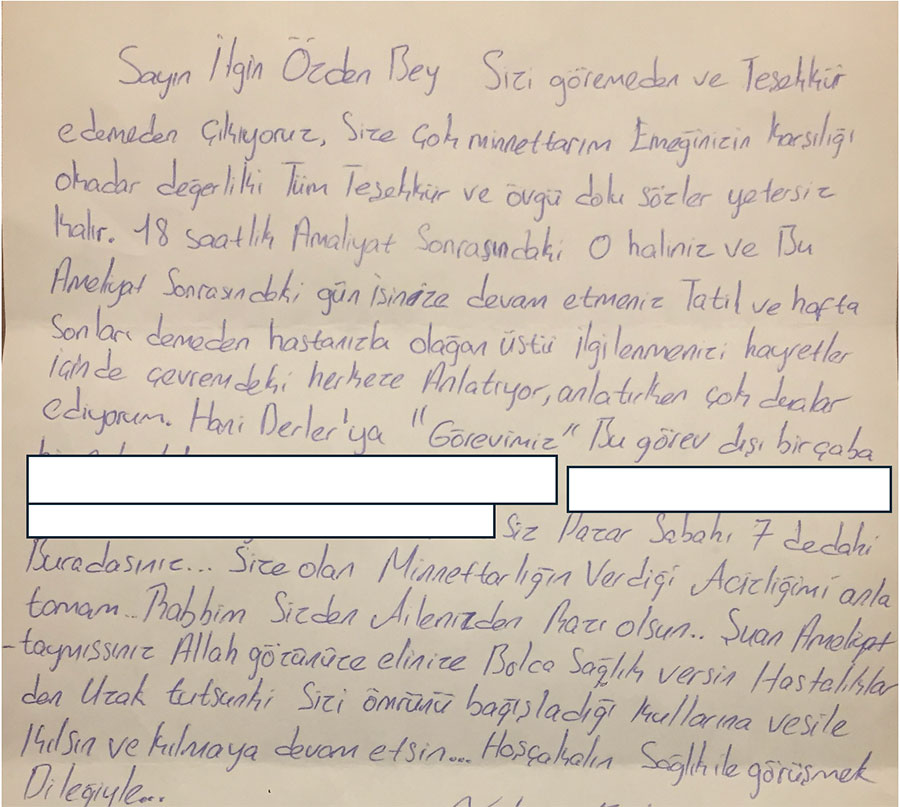 Sayın İlgin Özden Bey Sizi göremeden ve Teşekkür
edemeden Çıkıyoruz, Size Çok minnettarım Emeğinizin Karşılığı
okadar değerliki Tüm Teşekkür ve övgü dolu sözler yetersiz
kalır. 18 saatlik Amaliyat Sonrasındaki O haliniz ve Bu
Ameliyat Sonrasındaki gün isinize devam etmeniz Tatil ve hafta
Sonları demeden hastanızla olağan üstü ilgilenmenizi hayretler
içinde çevremdeki herkeze Anlatıyor, anlatırken çok dualar
ediyorum. Hani Derler'ya "Görevimiz" Bu görev dışı bir çaba
Siz Pazar Sabahı 7 dedahi
Buradasınız... Size olan Minnettarlığın Verdiği Acizliğimi anla
tamam.. Rabbim Sizden Ailenizden Razı olsun.. Şuan Ameliyat
-taymıssınız Allah gözünüze elinize Bolca Sağlık versin Hastalıklar
dan Uzak tutsunki Sizi ömrünü bağışladığı kullarına vesile
Kılsın ve kılmaya devam etsin... Hoşçakalın Sağlık ile görüşmek
Dileğiyle...